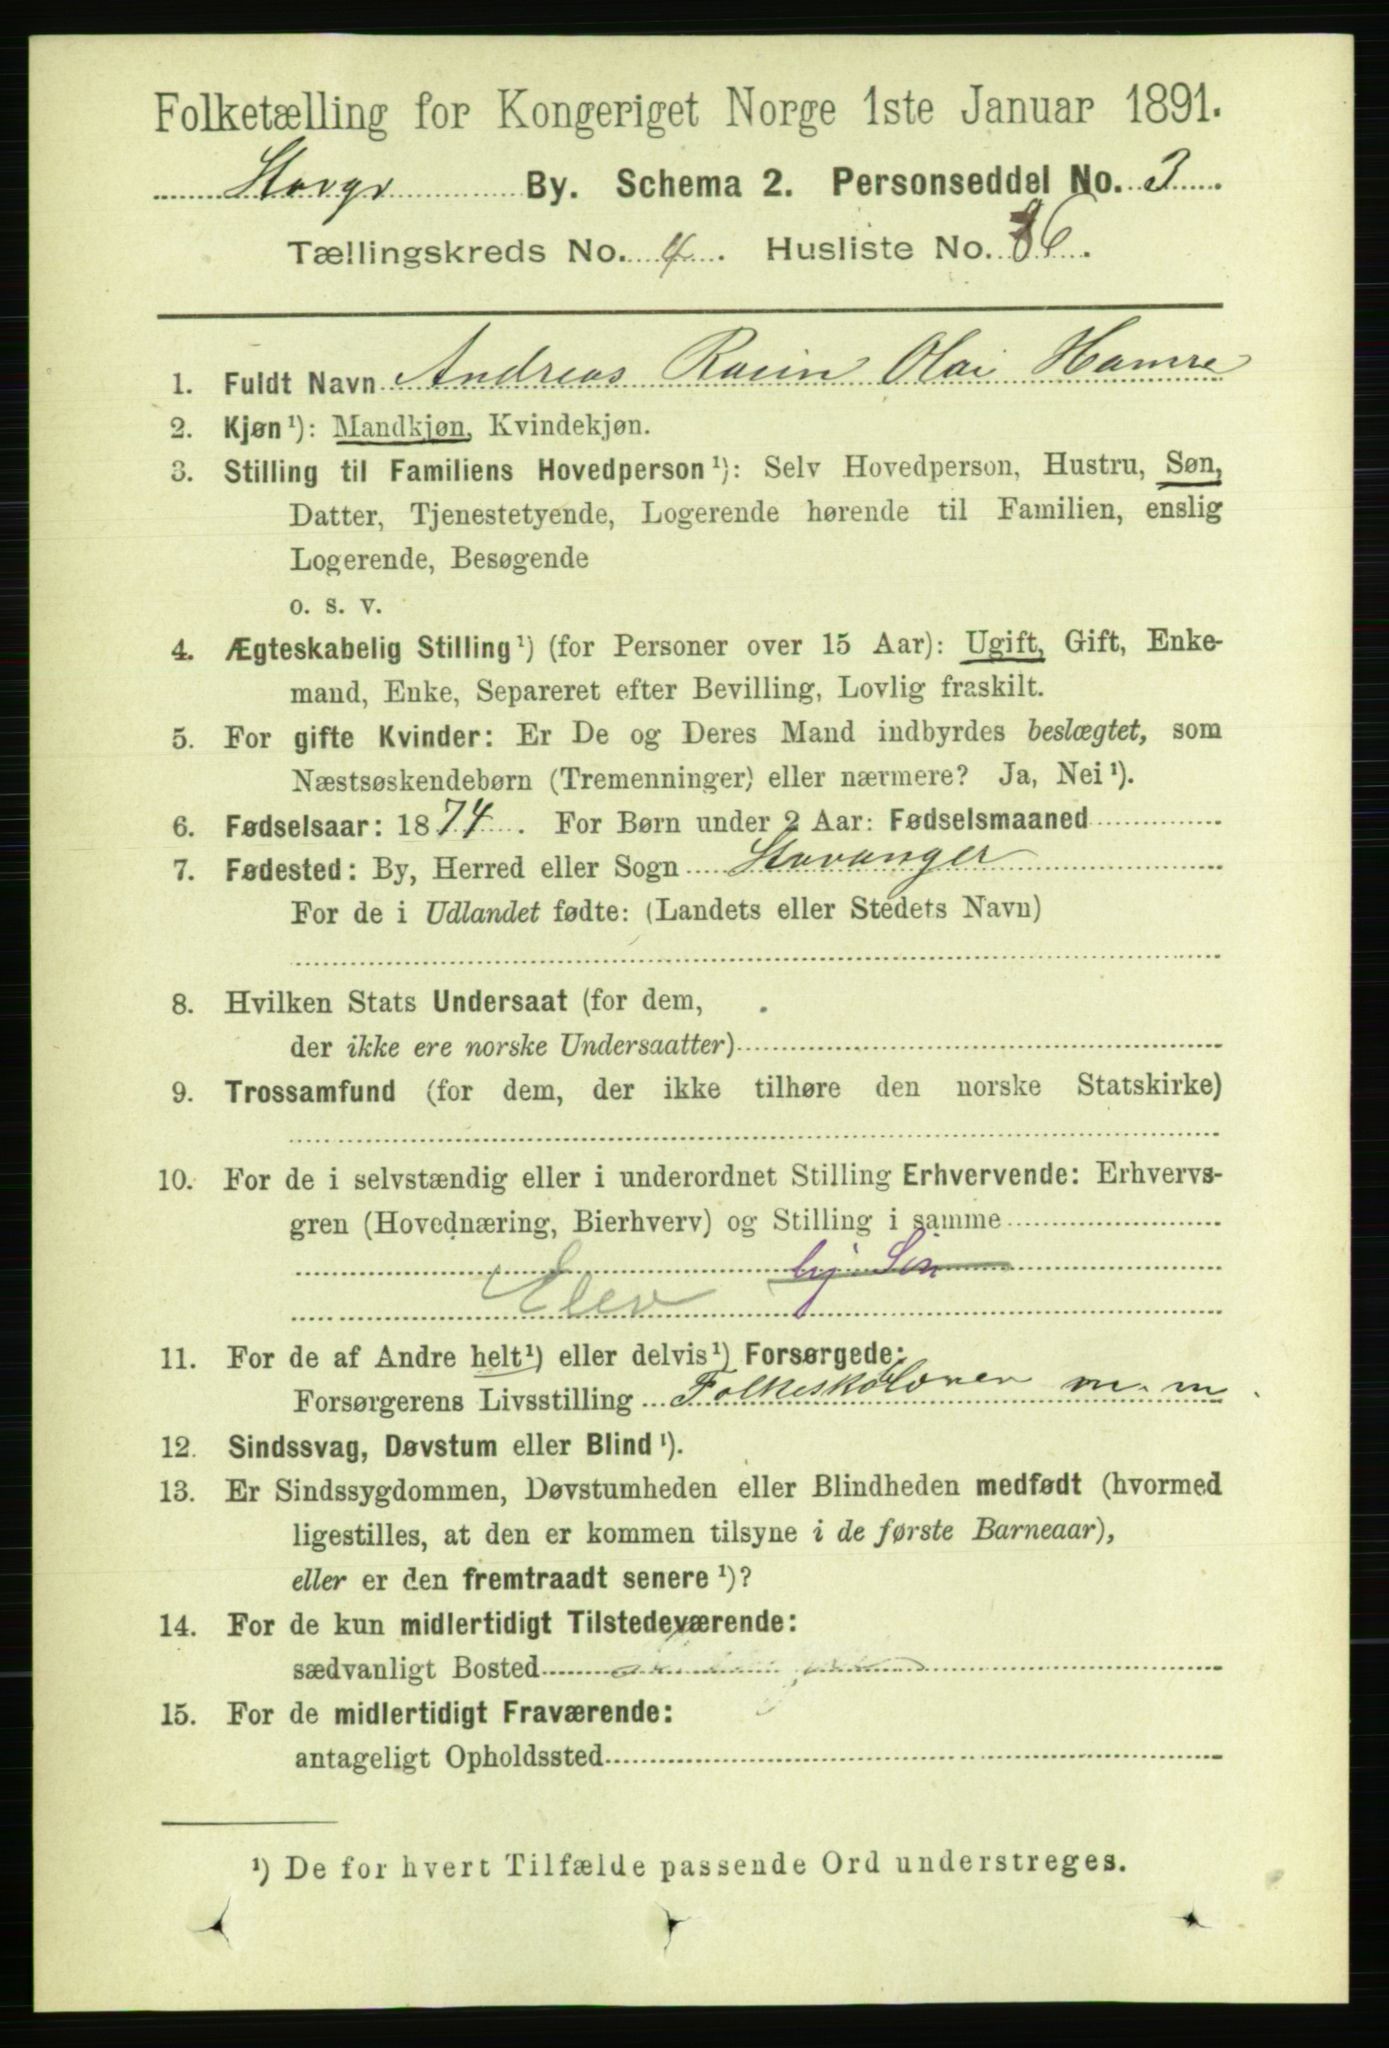 Folketælling for Kongeriget Norge 1ste Januar 1891.
Stavgr By. Schema 2. Personseddel No. 3
Tællingskreds No. 4. Husliste No. 36.
1. Fuldt Navn Andreas Olai Hamre
2. Kjøn¹): Mandkjøn, Kvindekjøn.
3. Stilling til Familiens Hovedperson¹): Selv Hovedperson, Hustru, Søn,
Datter, Tjenestetyende, Logerende hørende til Familien, enslig
Logerende, Besøgende
o. s. v.
4. Ægteskabelig Stilling¹) (for Personer over 15 Aar): Ugift, Gift, Enke-
mand, Enke, Separeret efter Bevilling, Lovlig fraskilt.
5. For gifte Kvinder: Er De og Deres Mand indbyrdes beslægtet, som
Næstsøskendebørn (Tremenninger) eller nærmere? Ja, Nei¹).
6. Fødselsaar: 1874. For Børn under 2 Aar: Fødselsmaaned
7. Fødested: By, Herred eller Sogn Stavanger
For de i Udlandet fødte: (Landets eller Stedets Navn)
8. Hvilken Stats Undersaat (for dem,
der ikke ere norske Undersaatter)
9. Trossamfund (for dem, der ikke tilhøre den norske Statskirke)
10. For de i selvstændig eller i underordnet Stilling Erhvervende: Erhvervs-
gren (Hovednæring, Bierhverv) og Stilling i samme
Elev
11. For de af Andre helt¹) eller delvis¹) Forsørgede:
Forsørgerens Livsstilling Folkeskolærer m. m
12. Sindssvag, Døvstum eller Blind¹).
13. Er Sindssygdommen, Døvstumheden eller Blindheden medfødt (hvormed
ligestilles, at den er kommen tilsyne i de første Barneaar),
eller er den fremtraadt senere¹)?
14. For de kun midlertidigt Tilstedeværende:
sædvanligt Bosted
15. For de midlertidigt Fraværende:
antageligt Opholdssted
¹) De for hvert Tilfælde passende Ord understreges.